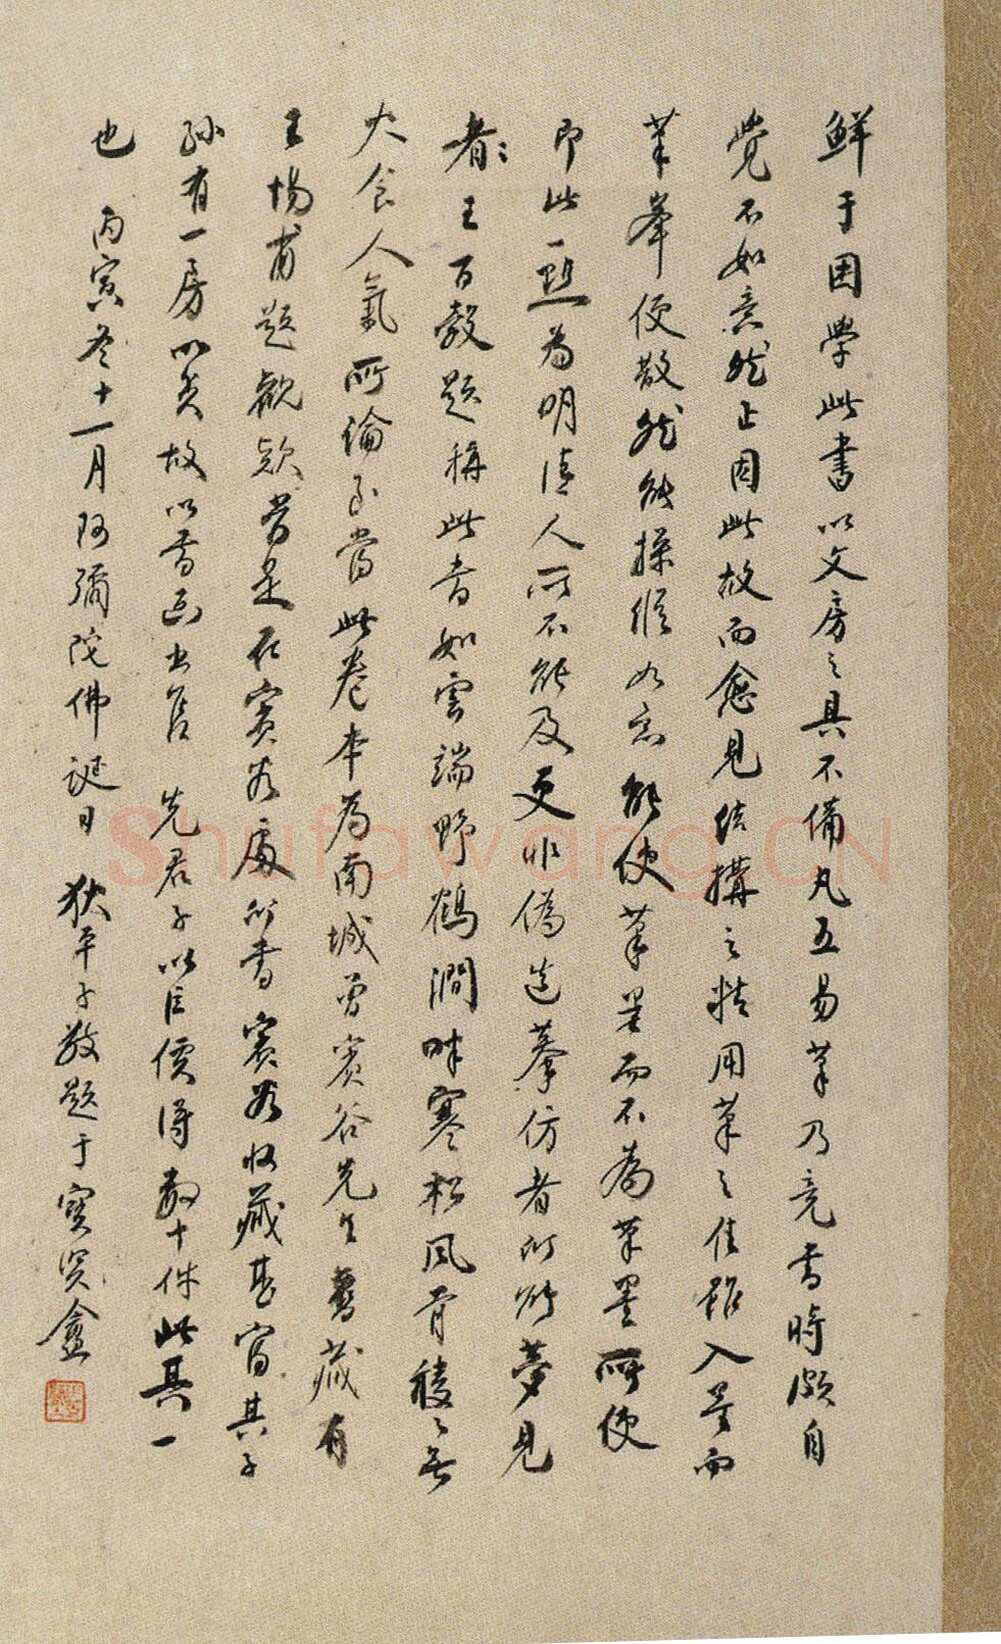 鮮于困學此書以文房之具不備凡五易筆乃竟書時頗自
覺不如意然正因此故而愈見結構之精用筆之佳雖入墨而
筆峯便散然能操縱如意能使筆墨而不為筆墨所使
即此一點為明清人所不能及更非偽造摹仿者所能夢見
者王百穀題稱此書如雲端野鶴澗畔寒松風骨稜々無
火食人氣所論至當此卷本為南城曾賓谷先生舊藏有
王惕甫題觀款當是在賓谷處所書賓谷收藏甚富其子
孫有一房以貧故以書画出售先君子以巨價得數十件此其一
也 丙寅冬十一月阿彌陀佛誕日 狄平子敬題于寶賢盦
Shufawang.CN